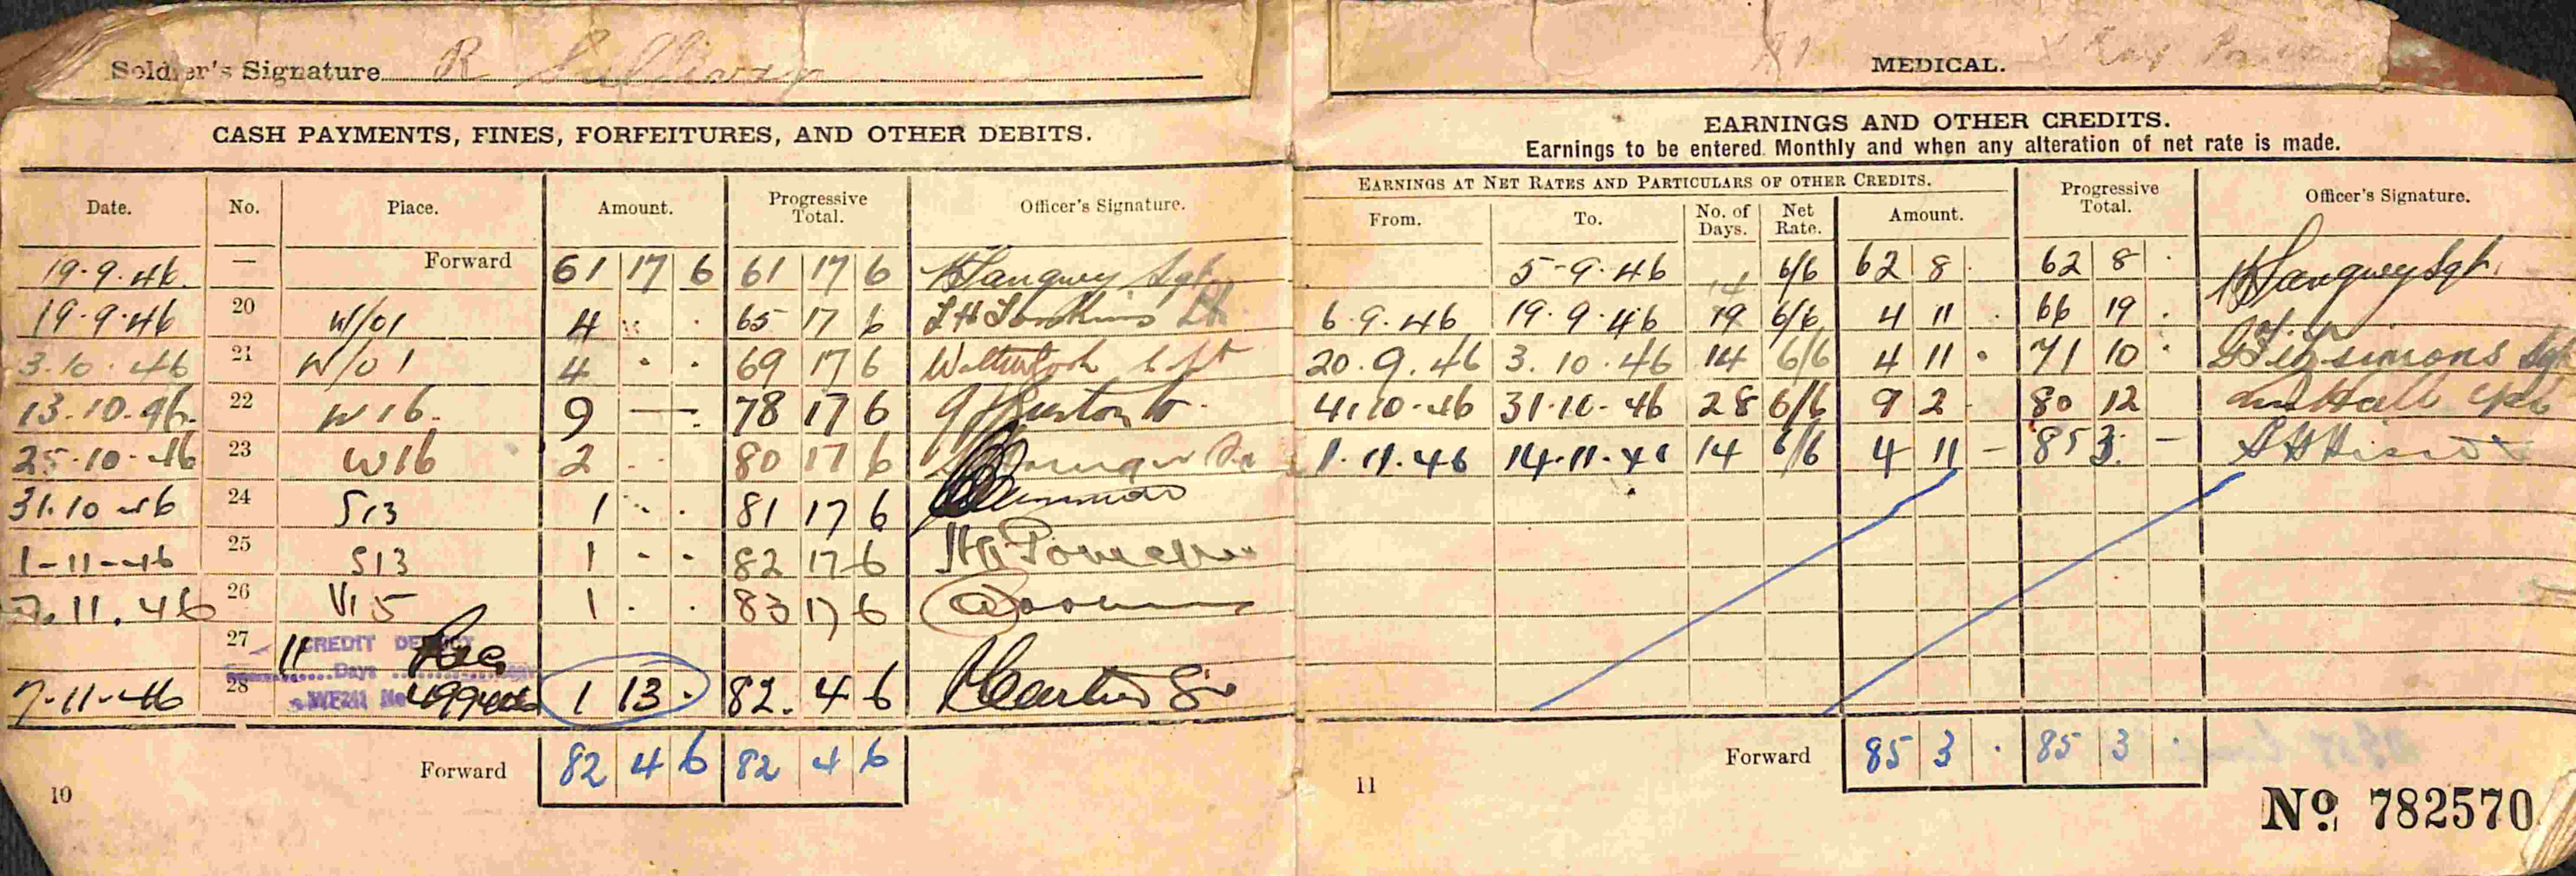 Soldier's Signature R Sullivan
MEDICAL.
CASH PAYMENTS, FINES, FORFEITURES, AND OTHER DEBITS.
Date. No. Place. Amount. Progressive Total. Officer's Signature.
19.9.46. — Forward 61 17 6 61 17 6 Sgt
19.9.46 20 W/01 4 . . 65 17 6 Lt
3.10.46 21 W/01 4 . . 69 17 6
13.10.46. 22 W16. 9 — . 78 17 6
25-10-46 23 W16 2 - - 80 17 6
31.10 46 24 S13 1 . . 81 17 6
1-11-46 25 S13 1 - - 82 17 6
7.11.46 26 V15 1 . . 83 17 6
27 11 CREDIT Rec
Days
7-11-46 28 1 13 . 82. 4 6
Forward 82 4 6 82 4 6
10
EARNINGS AND OTHER CREDITS.
Earnings to be entered Monthly and when any alteration of net rate is made.
EARNINGS AT NET RATES AND PARTICULARS OF OTHER CREDITS.
From. To. No. of Days. Net Rate. Amount. Progressive Total. Officer's Signature.
5-9.46 6/6 62 8 . 62 8 . Sgt.
14
6.9.46 19.9.46 19 6/6 4 11 . 66 19 .
20.9.46 3.10.46 14 6/6 4 11 . 71 10 . Fitzsimons Sgt
4.10.46 31.10-46 28 6/6 9 2 - 80 12 Hall Cpl
1.11.46 14.11.46 14 6/6 4 11 - 85 3. -
Forward 85 3 . 85 3 .
11
No. 782570